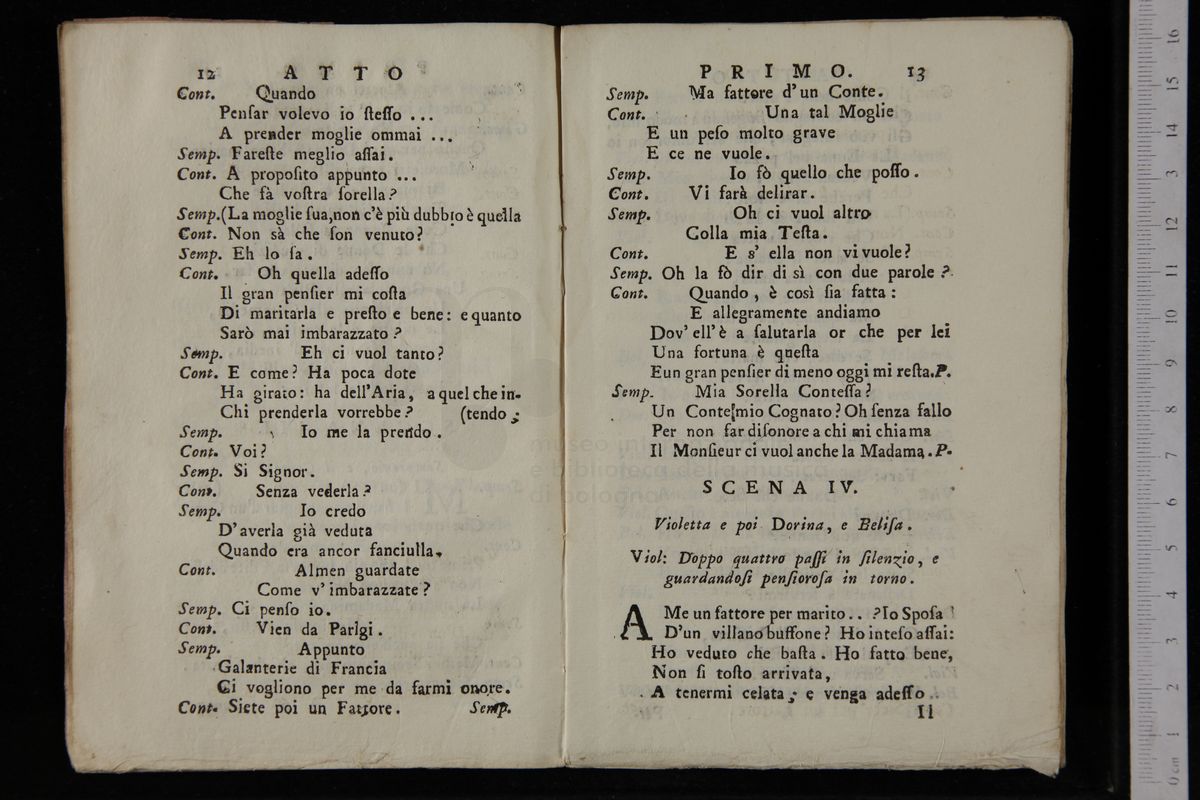 12 ATTO
Cont. Quando
Penſar volevo io ſteſſo ...
A prender moglie ommai ...
Semp. Fareſte meglio aſſai.
Cont. A propoſito appunto ...
Che fà voſtra ſorella?
Semp.(La moglie ſua,non c'è più dubbio è quella
Cont. Non sà che ſon venuto?
Semp. Eh lo ſa.
Cont. Oh quella adeſſo
Il gran penſier mi coſta
Di maritarla e preſto e bene: e quanto
Sarò mai imbarazzato?
Semp. Eh ci vuol tanto?
Cont. E come? Ha poca dote
Ha girato: ha dell'Aria, a quel che in-
Chi prenderla vorrebbe? (tendo;
Semp. Io me la prendo.
Cont. Voi?
Semp. Si Signor.
Cont. Senza vederla?
Semp. Io credo
D'averla già veduta
Quando era ancor fanciulla,
Cont. Almen guardate
Come v'imbarazzate?
Semp. Ci penſo io.
Cont. Vien da Parigi.
Semp. Appunto
Galanterie di Francia
Ci vogliono per me da farmi onore.
Cont. Siete poi un Fattore. Semp.
PRIMO. 13
Semp. Ma fattore d'un Conte.
Cont. Una tal Moglie
E un peſo molto grave
E ce ne vuole.
Semp. Io fò quello che poſſo.
Cont. Vi farà delirar.
Semp. Oh ci vuol altro
Colla mia Teſta.
Cont. E s' ella non vi vuole?
Semp. Oh la fò dir di sì con due parole?
Cont. Quando, è così ſia fatta:
E allegramente andiamo
Dov' ell'è a ſalutarla or che per lei
Una fortuna è queſta
E un gran penſier di meno oggi mi reſta.P.
Semp. Mia Sorella Conteſſa?
Un Conte mio Cognato? Oh ſenza fallo
Per non far diſonore a chi mi chiama
Il Monſieur ci vuol anche la Madama.P.
SCENA IV.
Violetta e poi Dorina, e Beliſa.
Viol: Doppo quattro paſſi in ſilenzio, e
guardandoſi penſioroſa in torno.
A Me un fattore per marito.. ? Io Spoſa
D'un villano buffone? Ho inteſo aſſai:
Ho veduto che baſta. Ho fatto bene,
Non ſi toſto arrivata,
A tenermi celata; e venga adeſſo
Il
museo in
e biblioteca della musica
di bologna